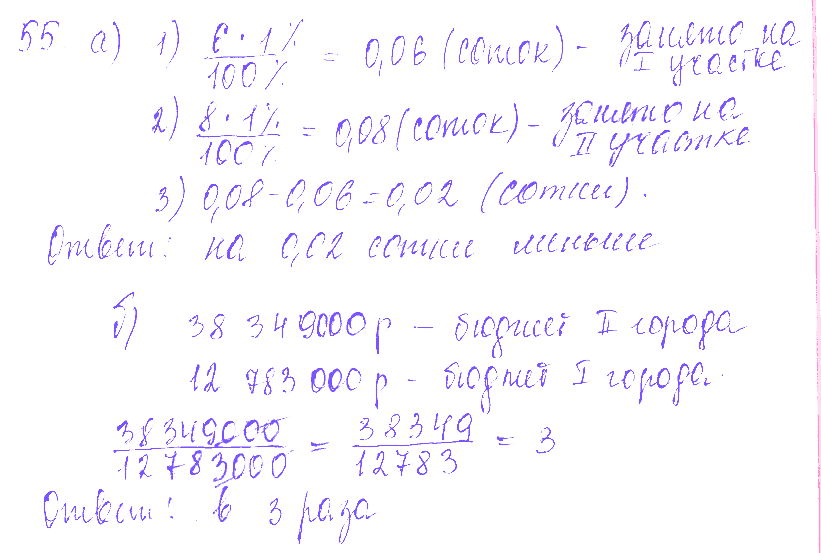 55 а) 1) 6 · 1% / 100% = 0,06 (соток) - занято на I участке
2) 8 · 1% / 100% = 0,08 (соток) - занято на II участке
3) 0,08 - 0,06 = 0,02 (сотки).
Ответ: на 0,02 сотки меньше
б) 38 349000 р - бюджет II города
12 783 000 р - бюджет I города.
38349000 / 12783000 = 38349 / 12783 = 3
Ответ: в 3 раза